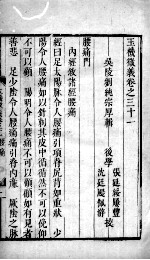 玉機微義卷之三十一
吳陵劉純宗厚輯 後學
張廷綬履豐
沈廷颺佩 校
腰痛門
內經敘諸經腰痛
經曰足太陽脉令人腰痛引項脊尻背如重狀 少
陽令人腰痛如以針刺其皮中循循然不可以俛仰
不可以顧 陽明令人腰痛不可以顧顧如有見者
善悲 足少陰令人腰痛痛引脊內廉 厥陰之脉